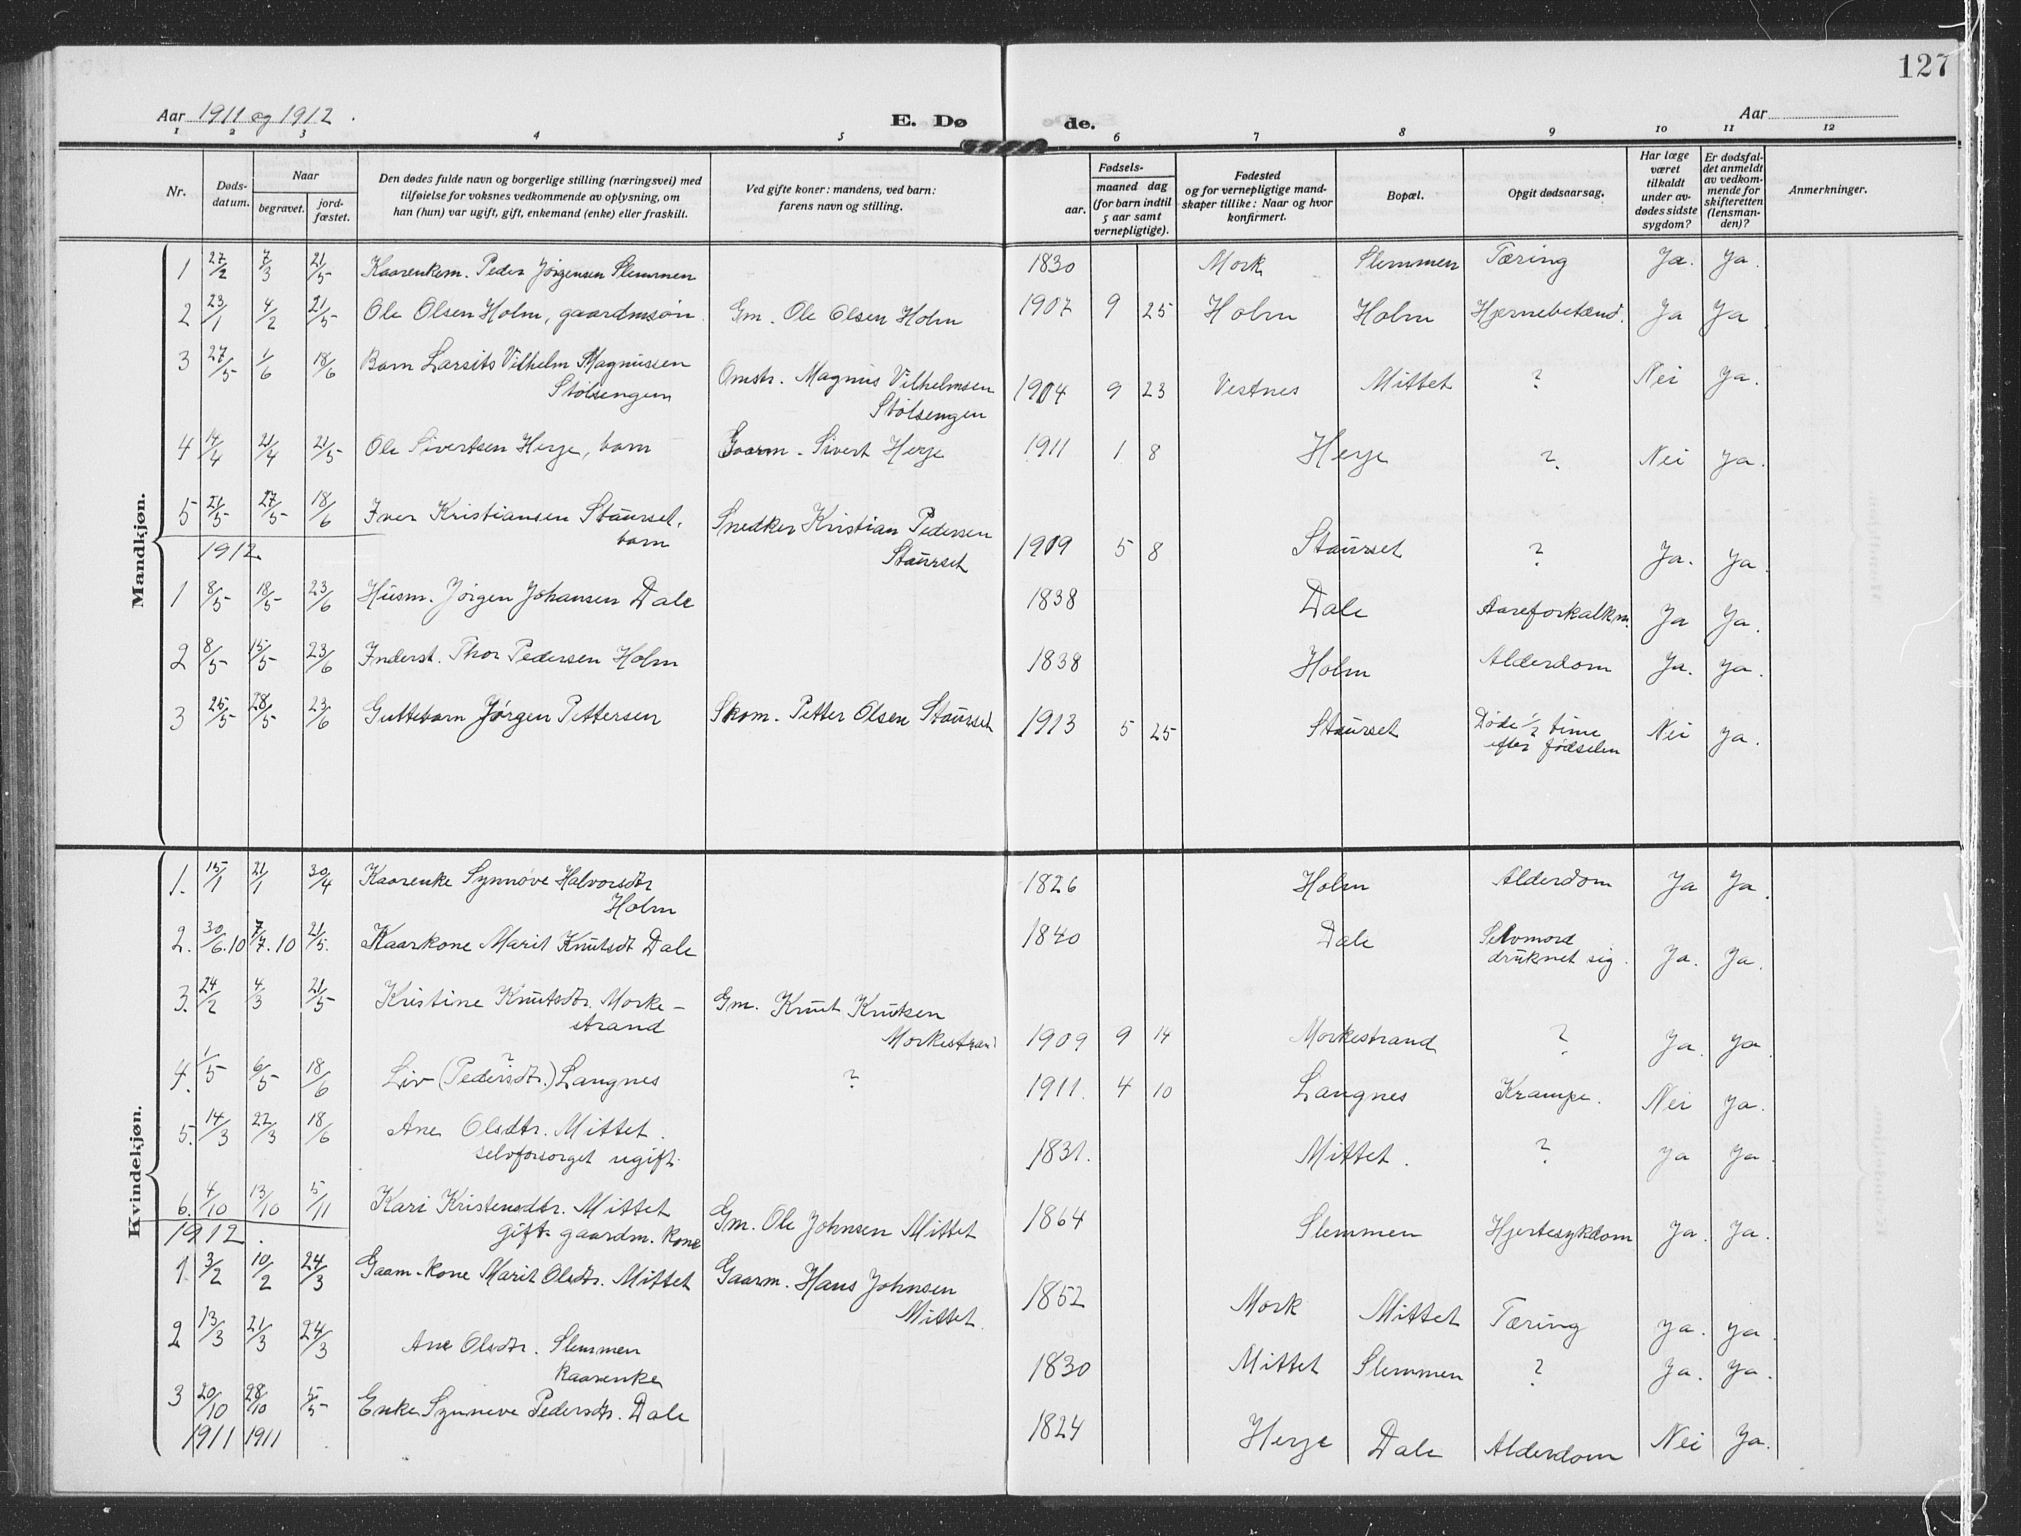 127
Aar 1911 og 1912.
E. Døde.
Aar
1 2 3 4 5 6 7 8 9 10 11 12
Nr.
Døds-datum.
Naar
begravet.
jord-fæstet.
Den dødes fulde navn og borgerlige stilling (næringsvei) med
tilføielse for voksnes vedkommende av oplysning, om
han (hun) var ugift, gift, enkemand (enke) eller fraskilt.
Ved gifte koner: mandens, ved barn:
farens navn og stilling.
Fødsels-
aar.
maaned dag
(for barn indtil
5 aar samt
vernepligtige).
Fødested
og for vernepligtige mand-
skaper tillike: Naar og hvor
konfirmert.
Bopæl.
Opgit dødsaarsag.
Har læge
været
tilkaldt
under av-
dødes sidste
sygdom?
Er dødsfal-
det anmeldt
av vedkom-
mende for
skifteretten
(lensman-
den)?
Anmerkninger.
Mandkjøn.
1 27/2 7/3 21/5 Kaarenkem. Peder Jørgensen Slemmen 1830 Mork Slemmen Tæring Ja. Ja.
2 23/1 4/2 21/5 Ole Olsen Holm, gaardmsøn. Gm. Ole Olsen Holm 1907 9 25 Holm Holm Hjernebetænd. Ja Ja
3 27/5 1/6 18/6 Barn Larsits Vilhelm Magnussen
Stølsengen
Omstr. Magnus Vilhelmsen
Stølsengen
1904 9 23 Vestnes Mittet ? Nei Ja.
4 14/4 21/4 21/5 Ole Sivertsen Herje, barn Gaarm. Sivert Herje 1911 1 8 Herje ? Nei Ja.
5 21/5 27/5 18/6 Iver Kristiansen Staurset,
barn
Snedker Kristian Pedersen
Staurset
1909 5 8 Staurset ? Ja. Ja.
1912.
1 8/5 18/5 23/6 Husm. Jørgen Johansen Dale 1838 Dale Aareforkalkn. Ja Ja.
2 8/5 15/5 23/6 Inderst. Thor Pedersen Holm 1838 Holm Alderdom Ja. Ja.
3 25/5 28/5 23/6 Guttebarn Jørgen Pettersen Skom. Petter Olsen Staurset 1913 5 25 Staurset Døde 1/2 time
efter fødselen
Nei Ja.
Kvindekjøn.
1. 15/1 21/1 30/4 Kaarenke Synnøve Halvorsdtr
Holm
1826 Holm Alderdom Ja Ja.
2. 30/6.10 7/7.10 21/5. Kaarkone Marit Knutsdt Dale 1840 Dale Selvmord
druknet sig.
Ja. Ja.
3. 24/2 4/3 21/5 Kristine Knutsdtr. Morke-
strand
Gm. Knut Knutsen
Morkestrand
1909 9 14 Morkestrand ? Ja. Ja.
4. 1/5 6/5 18/6 Liv (Pedersdtr.?) Langnes ? 1911. 4 10 Langnes Krampe. Nei Ja.
5. 14/3 22/3 18/6 Ane Olsdtr. Mittet.
selvforsorget ugift.
1831. Mittet. ? Ja Ja.
6. 4/10 13/10 5/11 Kari Kristensdtr. Mittet
gift gaardm. kone
Gm. Ole Johnsen Mittet 1864 Slemmen Hjertesykdom Ja. Ja.
1912.
1 3/2 10/2 24/3 Gaam-kone Marit Olsdtr. Mittet Gaarm. Hans Johnsen
Mittet.
1852 Mork Mittet Tæring Ja. Ja.
2 13/3 21/3 24/3 Ane Olsdtr. Slemmen
Kaarenke
1830 Mittet Slemmen ? Ja. Ja.
3 20/10 28/10 5/5 Enke Synneve Pedersdtr. Dale 1824 Herje Dale Alderdom Nei Ja.
1911 1911